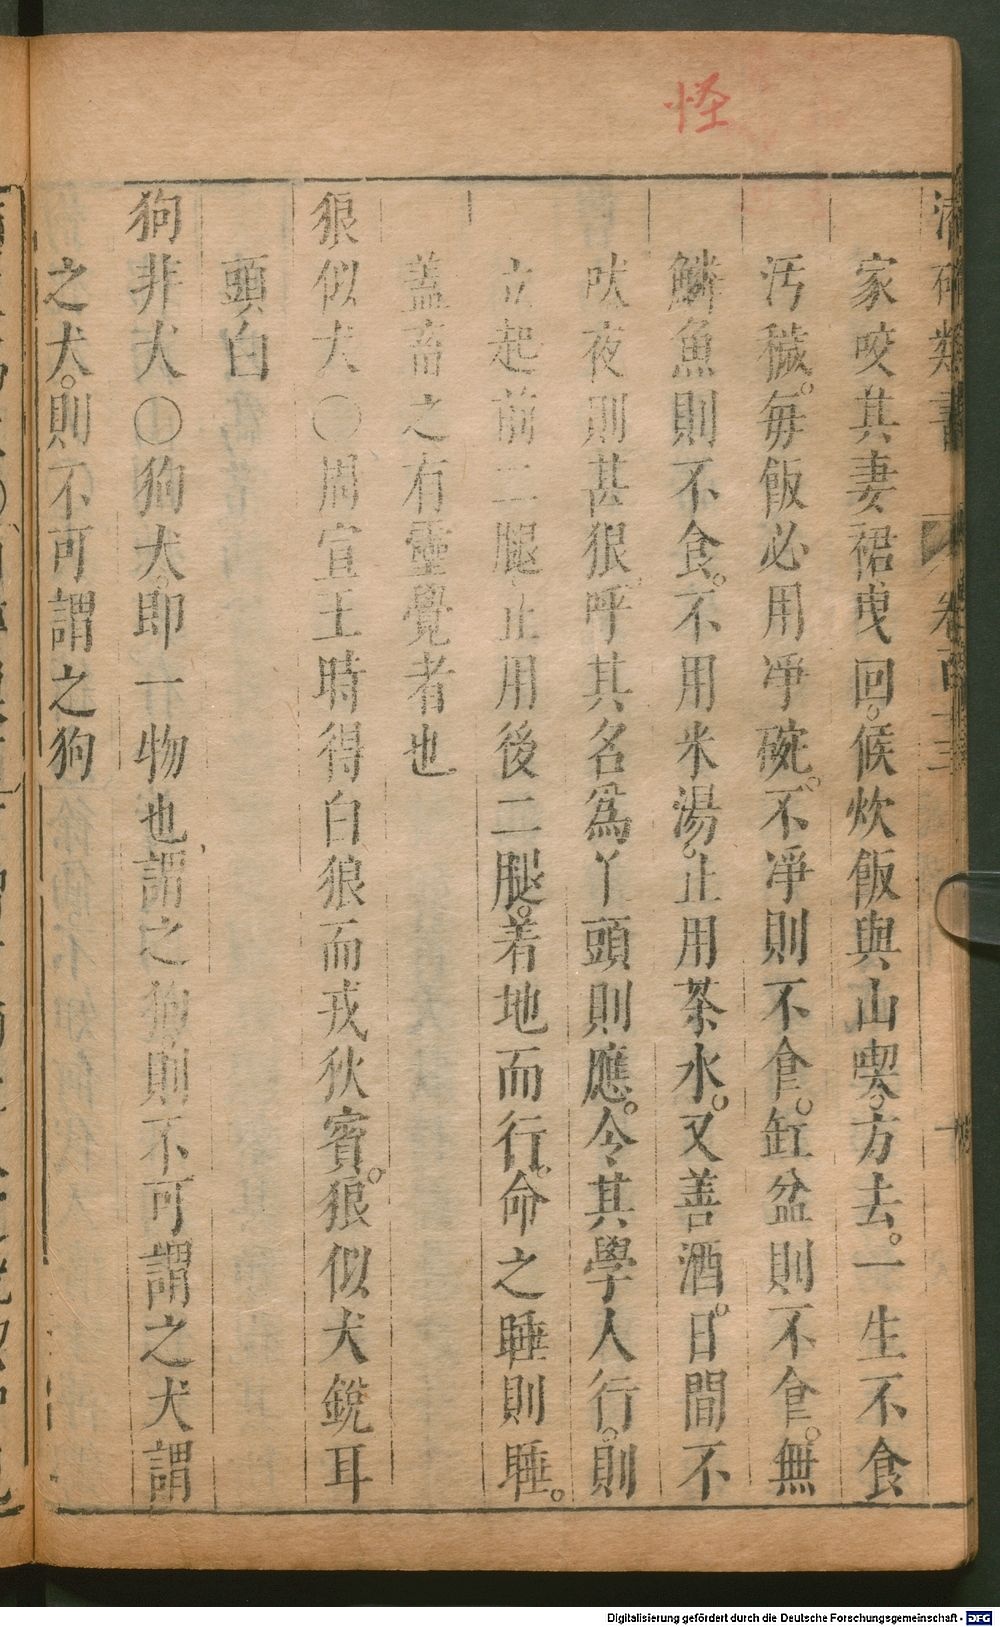 怪
家咬其妻裙曳回。候炊飯與山喫。方去。一生不食
汚穢。每飯必用凈碗。不凈則不食。缸盆則不食。無
鱗魚則不食。不用米湯。止用茶水。又善酒。日間不
吠夜則甚狠呼其名爲丫頭則應。令其學人行。則
立起前二腿止用後二腿。着地而行。命之睡則睡。
蓋畜之有靈覺者也
狼似犬〇周宣王時得白狼而戎狄賓。狼似犬銳耳
頭白
狗非犬〇狗犬。即一物也謂之狗則不可謂之犬謂
之犬。則不可謂之狗
Digitalisierung gefördert durch die Deutsche Forschungsgemeinschaft - DFG